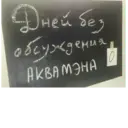 Дней без
обсуждения
АКВАМЭНА
0